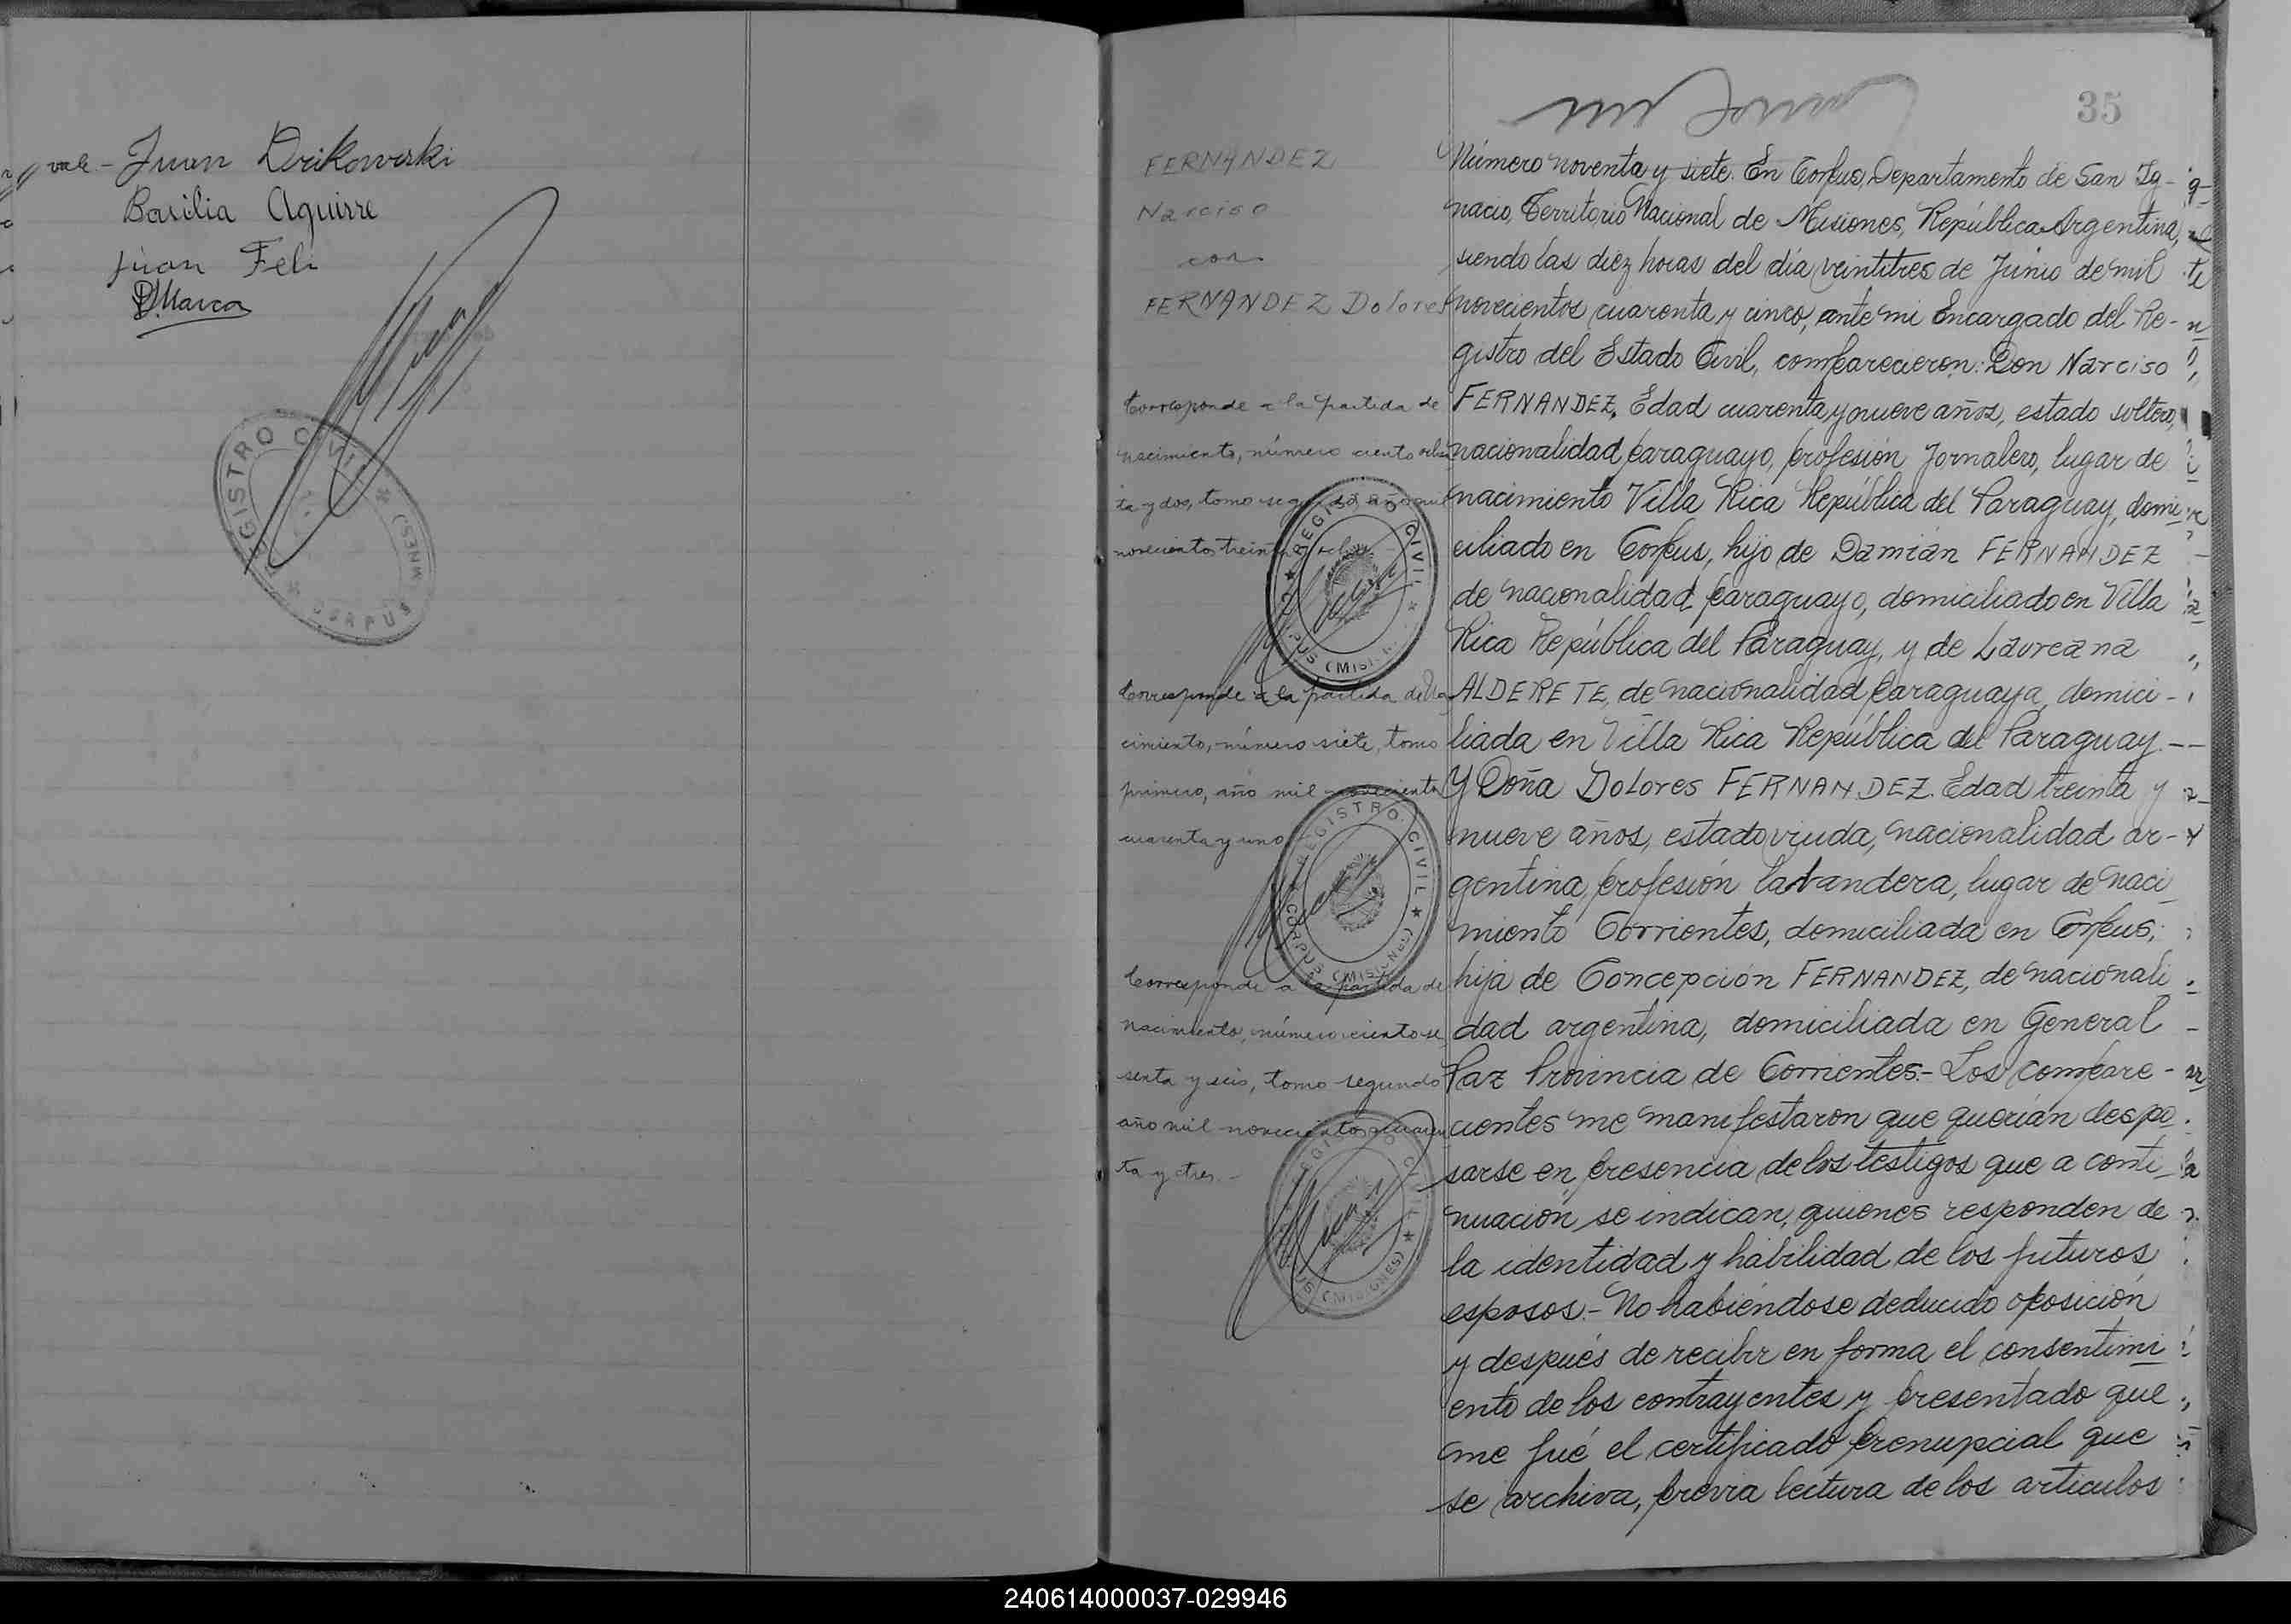 vale - Juan Drikowski
Basilia Aguirre
Juan Feli
D. Marca
REGISTRO CIVIL
CORPUS
35
FERNANDEZ
Narciso
con
FERNANDEZ Dolores
Corresponde a la partida de
nacimiento, número ciento ochen
ta y dos, tomo segundo año mil
novecientos treinta y ocho
REGISTRO CIVIL
CORPUS (MISIONES)
Corresponde a la partida de na
cimiento, número siete, tomo
primero, año mil novecientos
cuarenta y uno
REGISTRO CIVIL
CORPUS (MISIONES)
Corresponde a la partida de
nacimiento, número ciento se
senta y seis, tomo segundo
año mil novecientos cuaren
ta y tres.-
REGISTRO CIVIL
CORPUS (MISIONES)
Número noventa y siete. En Corpus, Departamento de San Ig-
nacio, Territorio Nacional de Misiones, República Argentina,
siendo las diez horas del día veintitres de Junio de mil
novecientos cuarenta y cinco, ante mi Encargado del Re-
gistro del Estado Civil, comparecieron: Don Narciso
FERNANDEZ, Edad cuarenta y nueve años, estado soltero,
nacionalidad paraguayo, profesión Jornalero, lugar de
nacimiento Villa Rica República del Paraguay, domi-
ciliado en Corpus, hijo de Damián FERNANDEZ
de nacionalidad paraguayo, domiciliado en Villa
Rica República del Paraguay, y de Laureana
ALDERETE, de nacionalidad paraguaya, domici-
liada en Villa Rica República del Paraguay.--
Y Doña Dolores FERNANDEZ. Edad treinta y
nueve años, estado viuda, nacionalidad ar-
gentina, profesión lavandera, lugar de naci
miento Corrientes, domiciliada en Corpus,
hija de Concepción FERNANDEZ, de nacionali
dad argentina, domiciliada en General
Paz Provincia de Corrientes.- Los compare-
cientes me manifestaron que querían despo
sarse en presencia de los testigos que a conti
nuación se indican, quienes responden de
la identidad y habilidad de los futuros
esposos.- No habiéndose deducido oposición
y después de recibir en forma el consentimi
ento de los contrayentes y presentado que
me fué el certificado prenupcial que
se archiva, previa lectura de los artículos
240614000037-029946